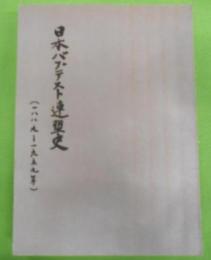 日本バプテスト連盟史
(一八八九―一九五九年)